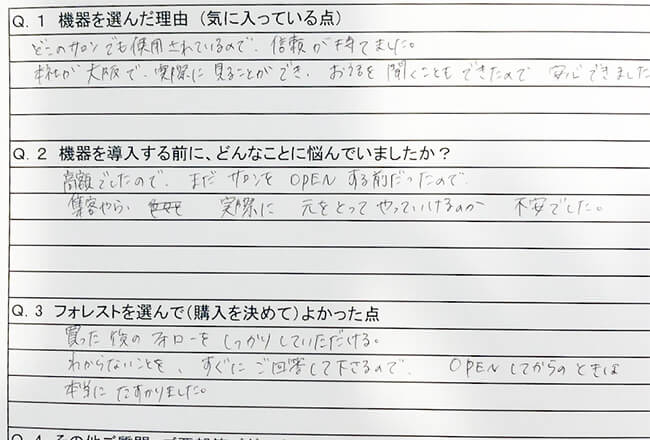 Q. 1 機器を選んだ理由 (気に入っている点)
どこのサロンでも使用されているので、信頼が持てました。
本社が大阪で、実際に見ることができ、お話を聞くこともできたので 安心できました
Q. 2 機器を導入する前に、どんなことに悩んでいましたか？
高額でしたので、まだサロンをOPENする前だったので、
集客やら、実際に 元をとって やっていけるのか 不安でした。
Q. 3 フォレストを選んで(購入を決めて)よかった点
買った後のフォローをしっかりしていただける。
わからないことを、すぐにご回答して下さるので、 OPENしてからのときは
本当にたすかりました。